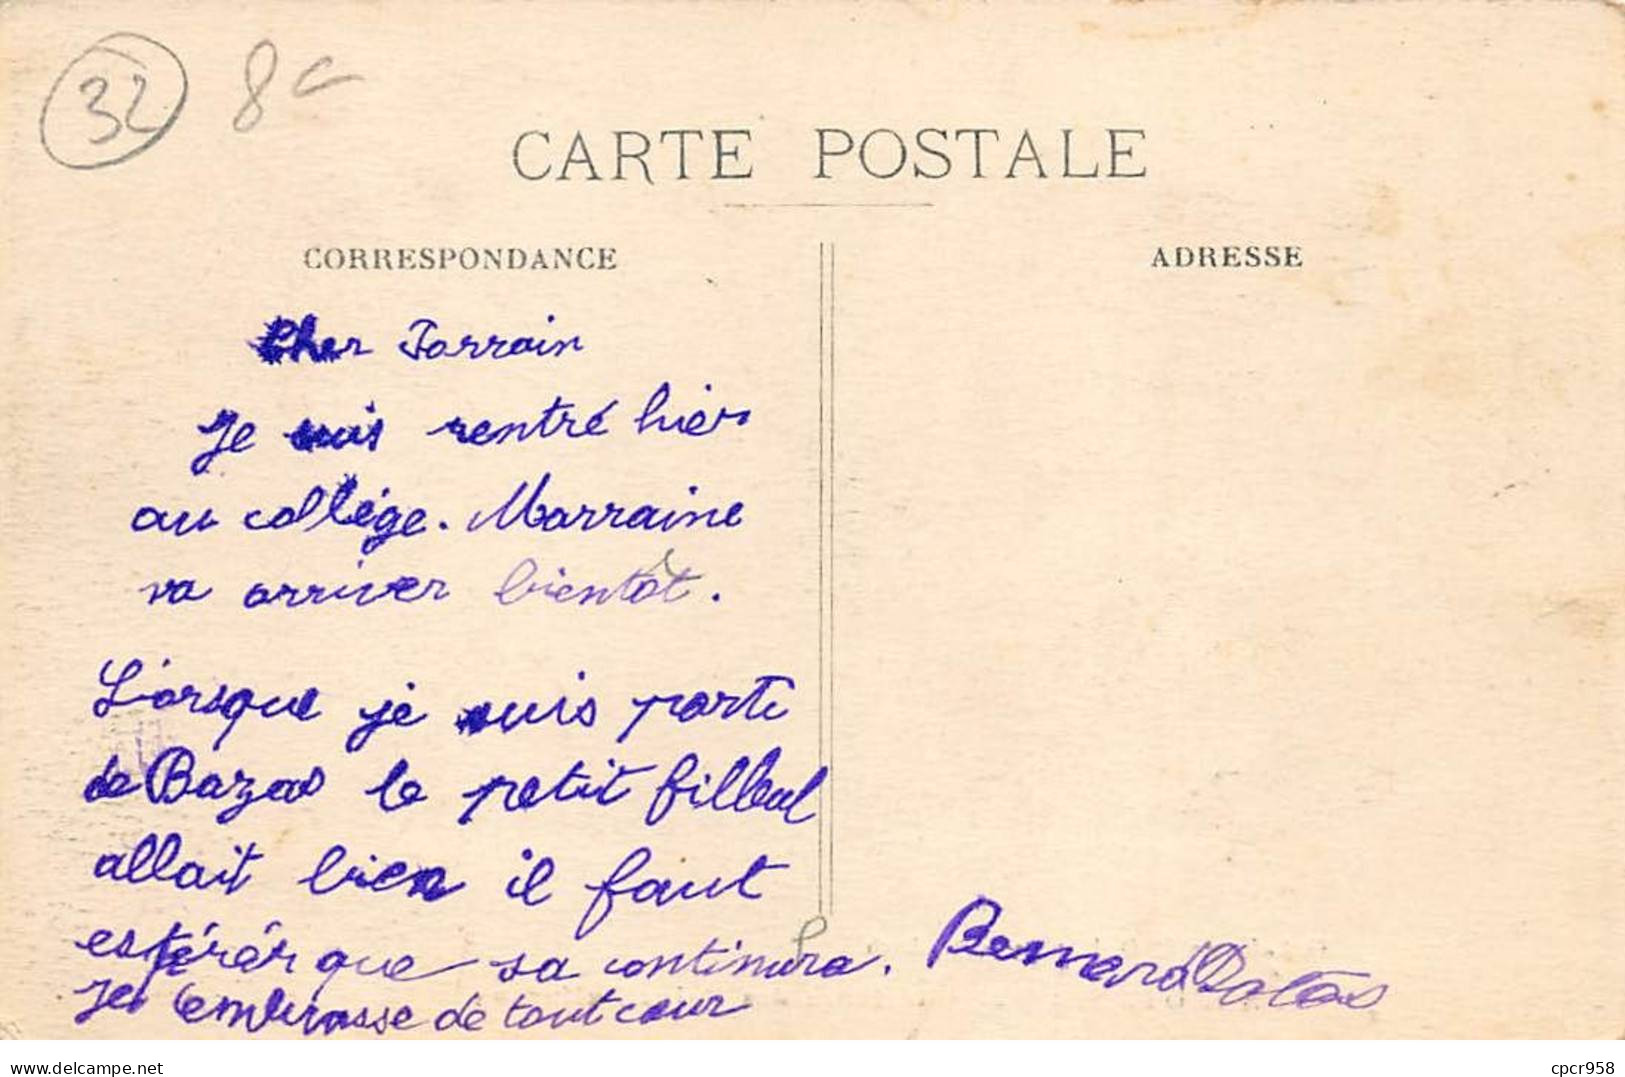 32 8
CARTE POSTALE
CORRESPONDANCE
ADRESSE
Cher Parrain
Je suis rentré hier
au collége. Marraine
va arriver bientôt.
Lorsque je suis parti
de Bazas le petit filleul
allait bien il faut
espérér que sa continura.
Je t'embrasse de tout cœur
Bernard
delcampe.net
cpcr958